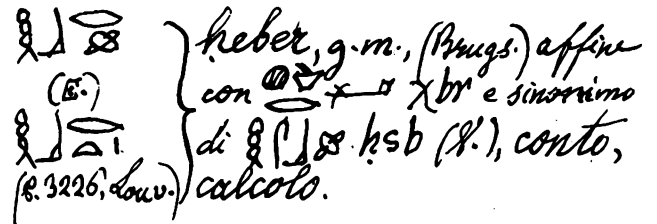 𓎛𓃀𓂋
𓎛𓃀𓂋𓏏
(P. 3226, Louv.)
ḥeber, g.m., (Brugs.) affine
con χbr e sinonimo
di 𓎛𓋴𓃀 ḥsb (V.), conto,
calcolo.